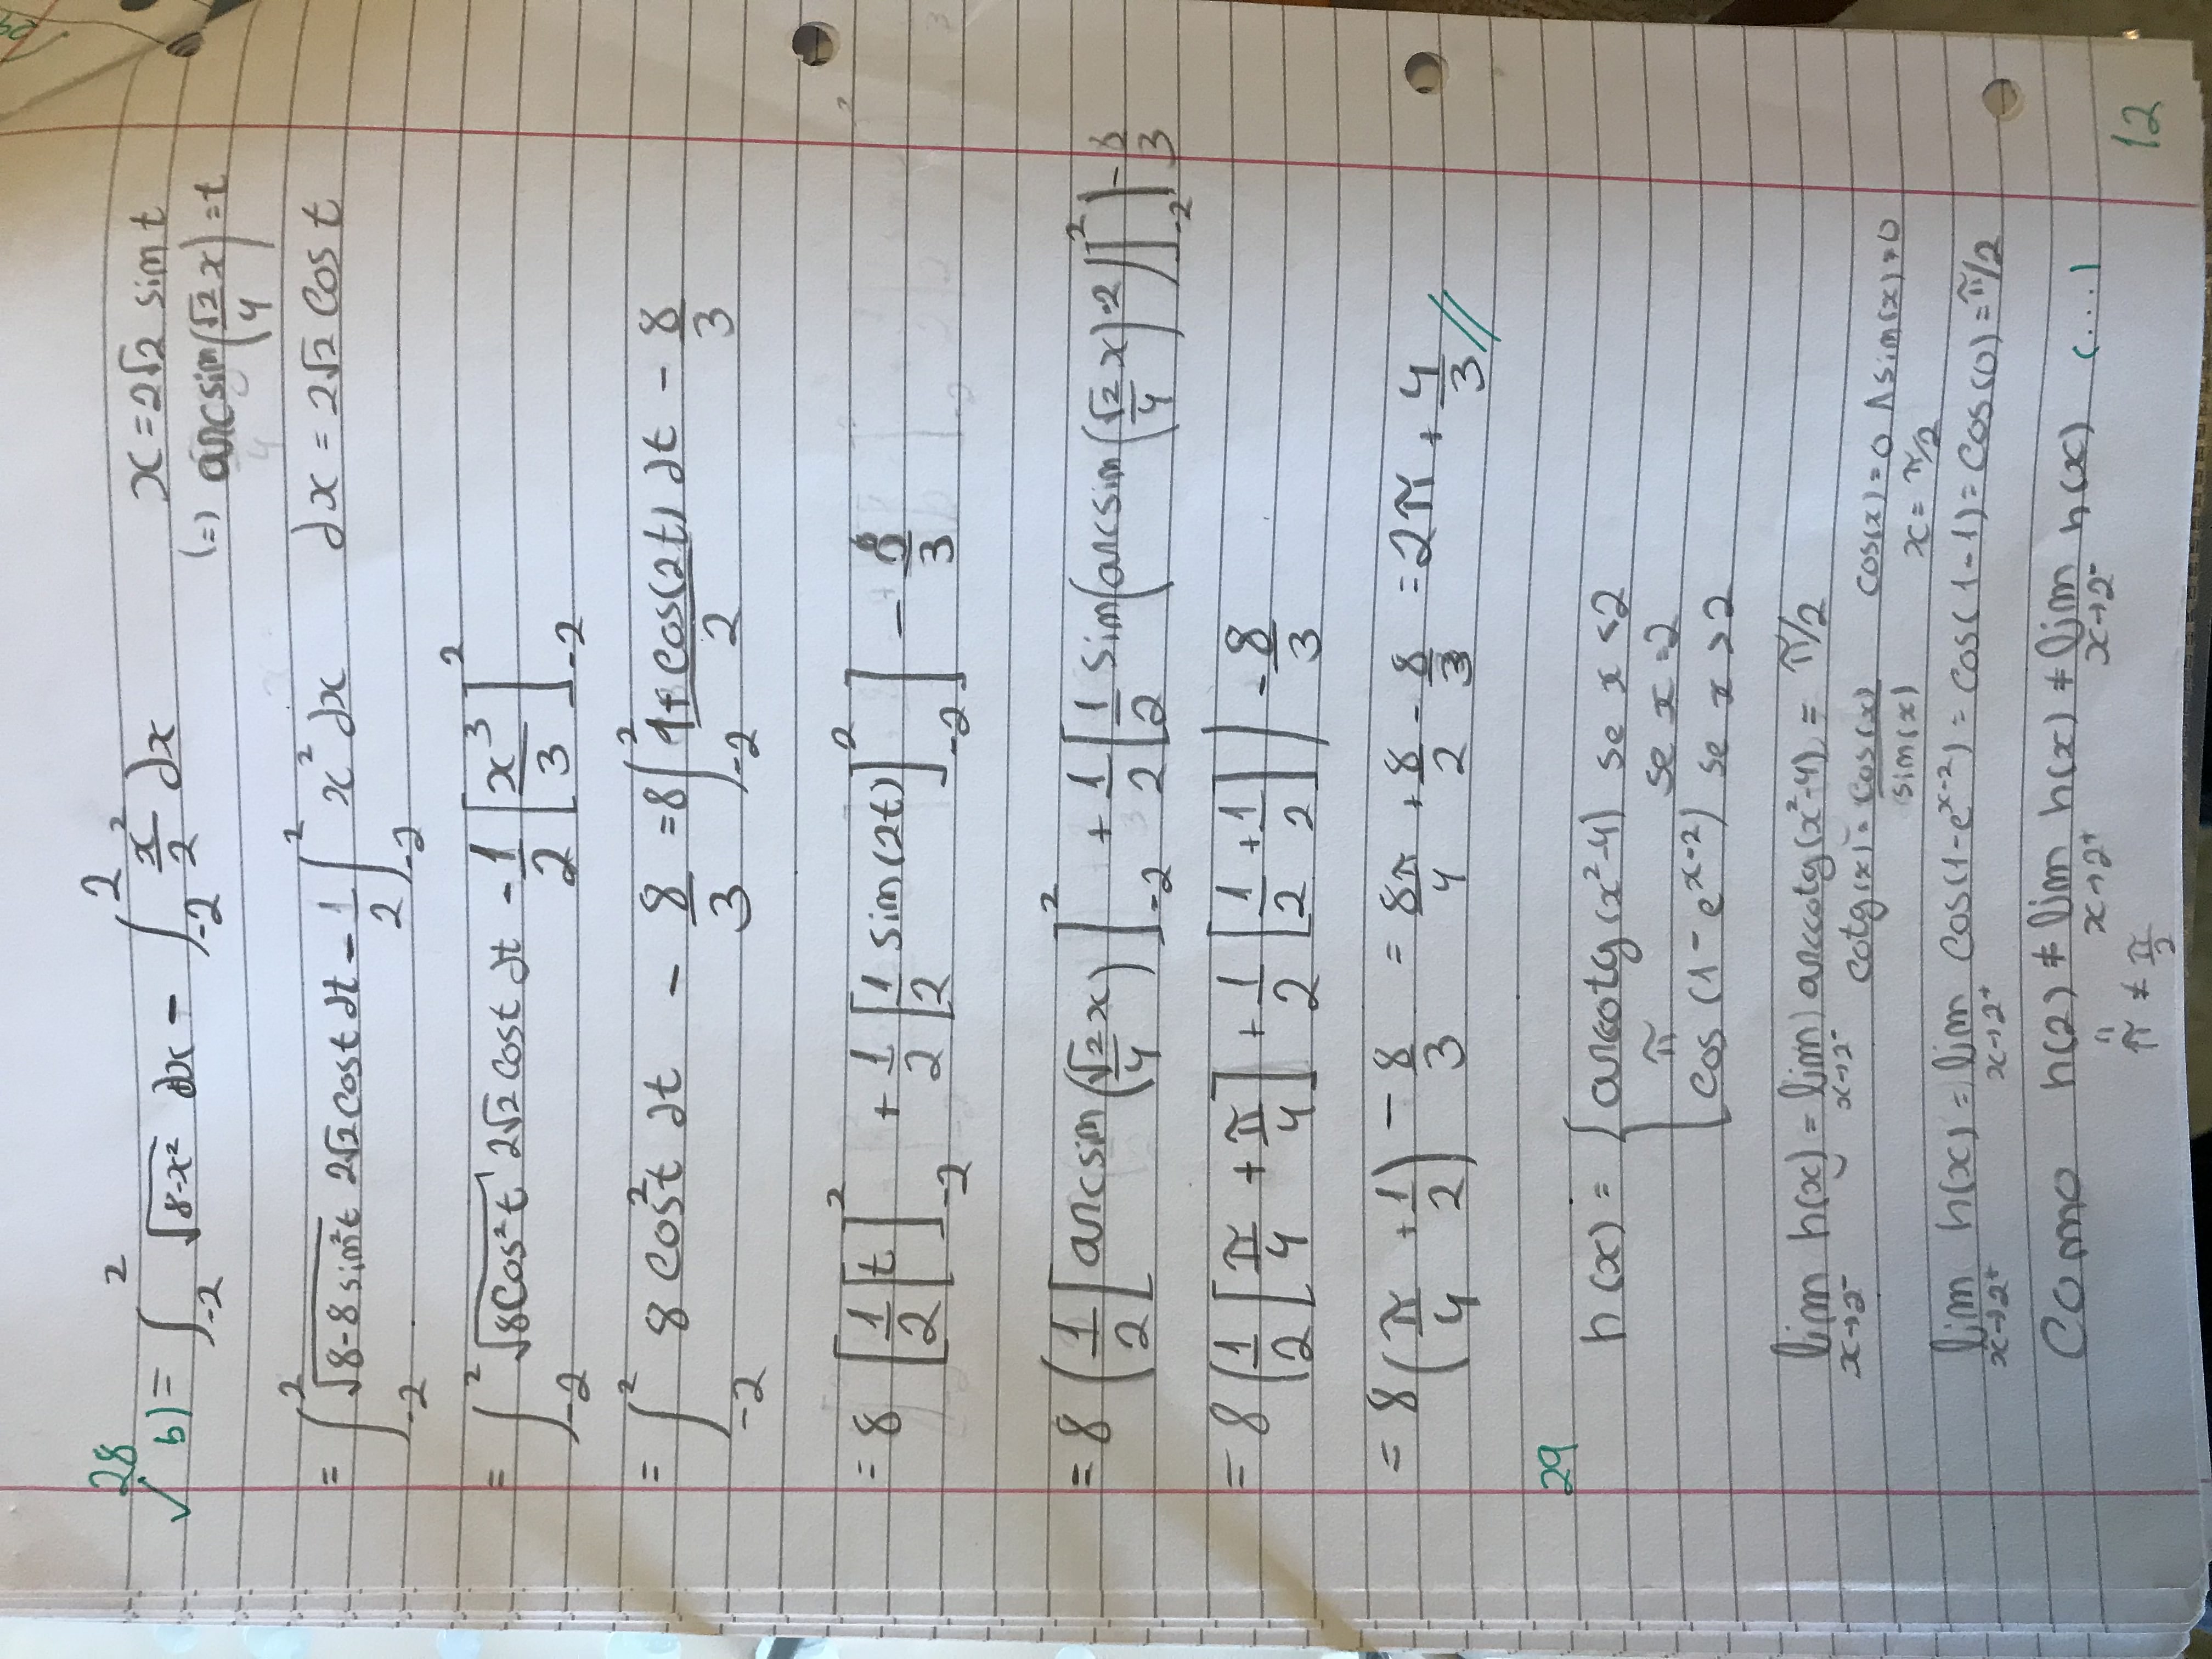 28
✓ b) = ∫_{-2}^{2} √(8-x²) dx - ∫_{-2}^{2} x²/2 dx    x = 2√2 sin t
(=) arcsin(√2 x/4) = t
= ∫_{-2}^{2} √(8-8sin²t) 2√2 cos t dt - 1/2 ∫_{-2}^{2} x² dx    dx = 2√2 cos t
= ∫_{-2}^{2} √(8cos²t) 2√2 cos t dt - 1/2 [x³/3]_{-2}^{2}
= ∫_{-2}^{2} 8 cos²t dt - 8/3 = 8 ∫_{-2}^{2} (1 + cos(2t))/2 dt - 8/3
= 8 [1/2 [t]_{-2}^{2} + 1/2 [1/2 sin(2t)]_{-2}^{2}] - 8/3
= 8 (1/2 [arcsin(√2/4 x)]_{-2}^{2} + 1/2 [1/2 sin(arcsin(√2/4 x)·2)]_{-2}^{2}) - 8/3
= 8 (1/2 [π/4 + π/4] + 1/2 [1/2 + 1/2]) - 8/3
= 8 (π/4 + 1/2) - 8/3 = 8π/4 + 8/2 - 8/3 = 2π + 4/3 //
29
h(x) = { arccotg(x²-4) se x < 2
π se x = 2
cos(1-e^{x-2}) se x > 2
lim_{x→2⁻} h(x) = lim_{x→2⁻} arccotg(x²-4) = π/2
cotg(x) = cos(x)/sin(x)    cos(x) = 0 ∧ sin(x) ≠ 0
x = π/2
lim_{x→2⁺} h(x) = lim_{x→2⁺} cos(1-e^{x-2}) = cos(1-1) = cos(0) = π/2
Como h(2) ≠ lim_{x→2⁺} h(x) ≠ lim_{x→2⁻} h(x) (....)
"
π ≠ π/2
12